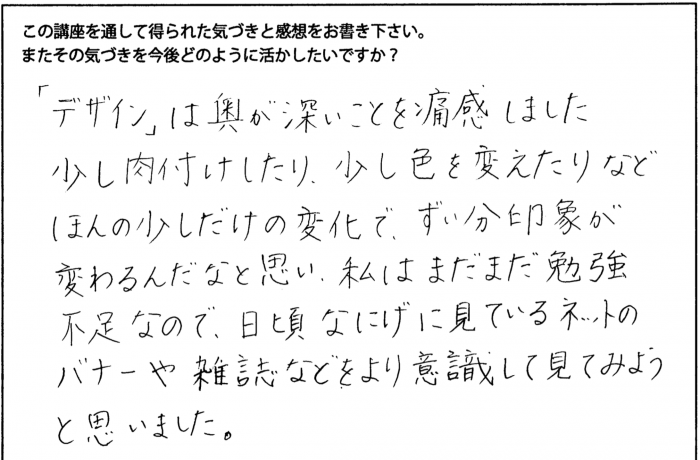 この講座を通して得られた気づきと感想をお書き下さい。
またその気づきを今後どのように活かしたいですか？
「デザイン」は奥が深いことを痛感しました
少し肉付けしたり、少し色を変えたりなど
ほんの少しだけの変化で、ずい分印象が
変わるんだなと思い、私はまだまだ勉強
不足なので、日頃なにげに見ているネットの
バナーや雑誌などをより意識して見てみよう
と思いました。